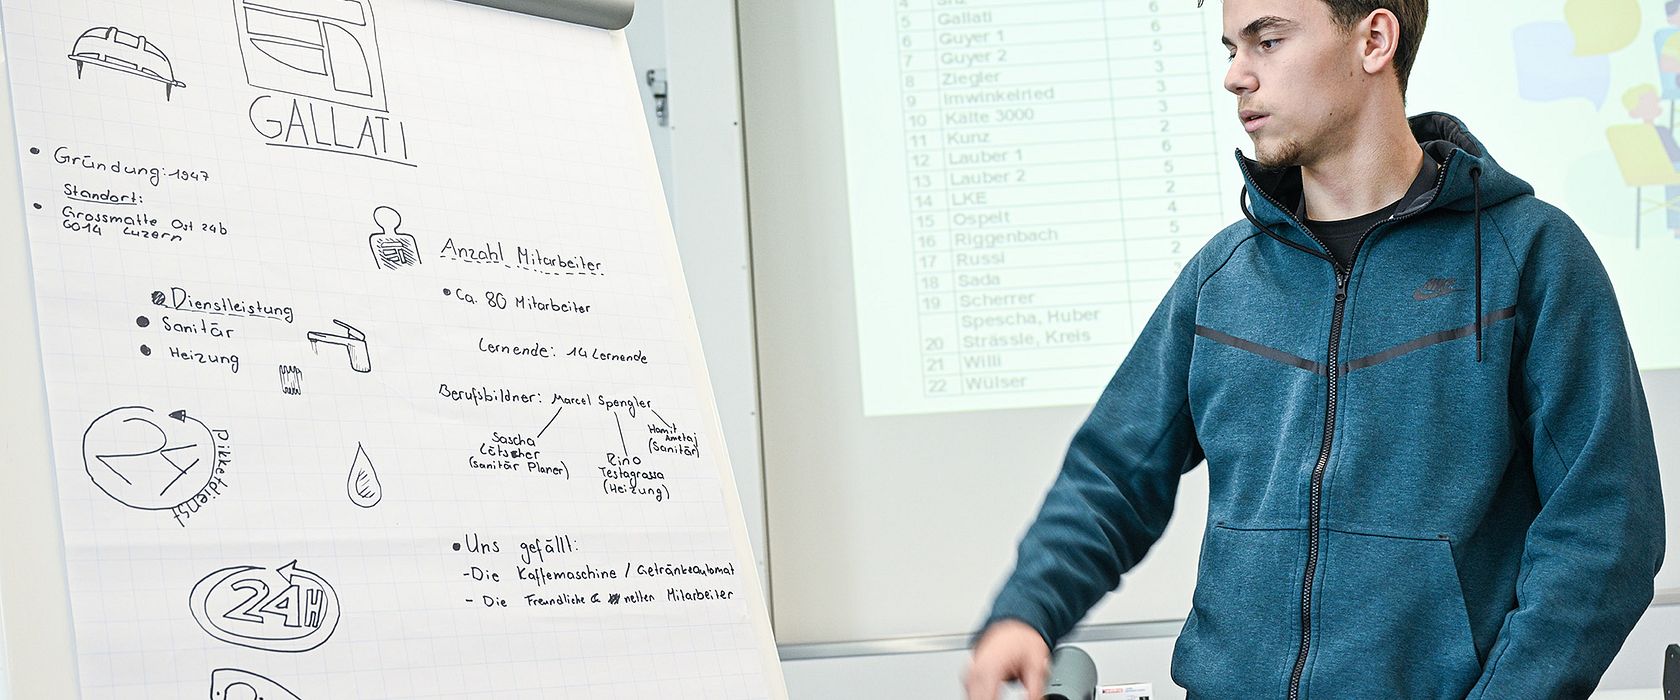 GALLATI
Gründung: 1947
Standort:
Grossmatte Ost 24b
6014 Luzern
Dienstleistung
Sanitär
Heizung
Pikketdienst
24H
Anzahl Mitarbeiter
Ca. 80 Mitarbeiter
Lernende: 14 Lernende
Berufsbildner: Marcel Spengler
Sascha
Lötscher
(Sanitär Planer)
Rino
Testagrossa
(Heizung)
Hamit
Ametaj
(Sanitär)
Uns gefällt:
-Die Kaffemaschine / Getränkeautomat
- Die Freundliche & netten Mitarbeiter
5 Gallati 6
6 Guyer 1
7 Guyer 2
8 Ziegler
9 Imwinkelried
10 Kälte 3000
11 Kunz
12 Lauber 1
13 Lauber 2
14 LKE
15 Ospelt
16 Riggenbach
17 Russi
18 Sada
19 Scherrer
Spescha, Huber
20 Strässle, Kreis
21 Willi
22 Wülser